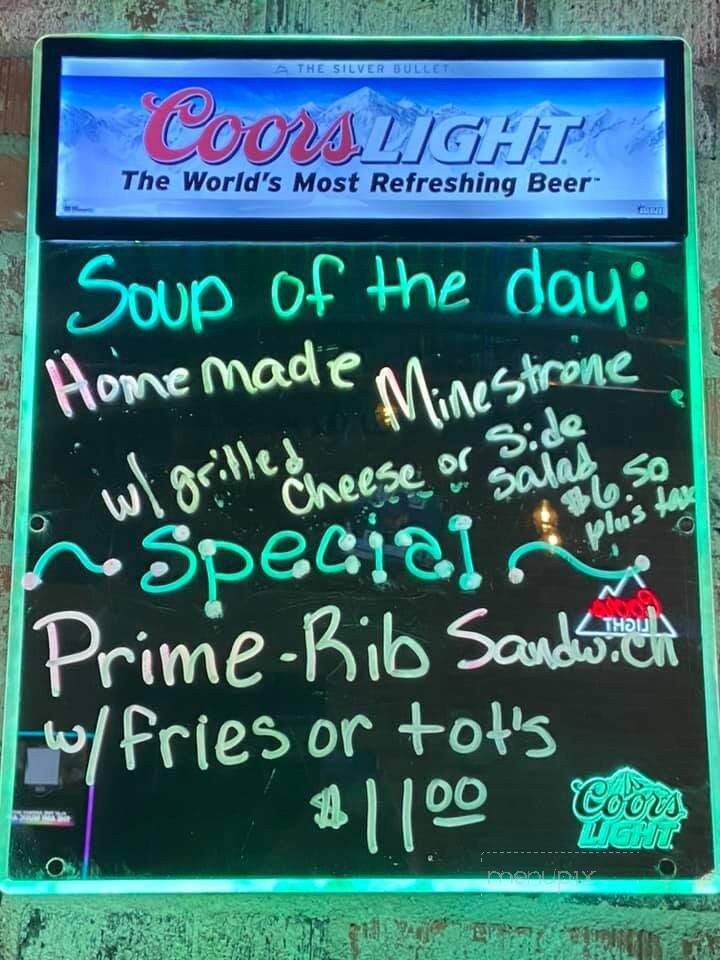 THE SILVER BULLET
Coors LIGHT
The World's Most Refreshing Beer
Soup of the day:
Homemade Minestrone
w/ grilled cheese or Side Salad
$6.50
plus tax
~ Special ~
Coors
LIGHT
Prime-Rib Sandwich
w/ fries or tot's
$11.00
Coors
LIGHT
menupix